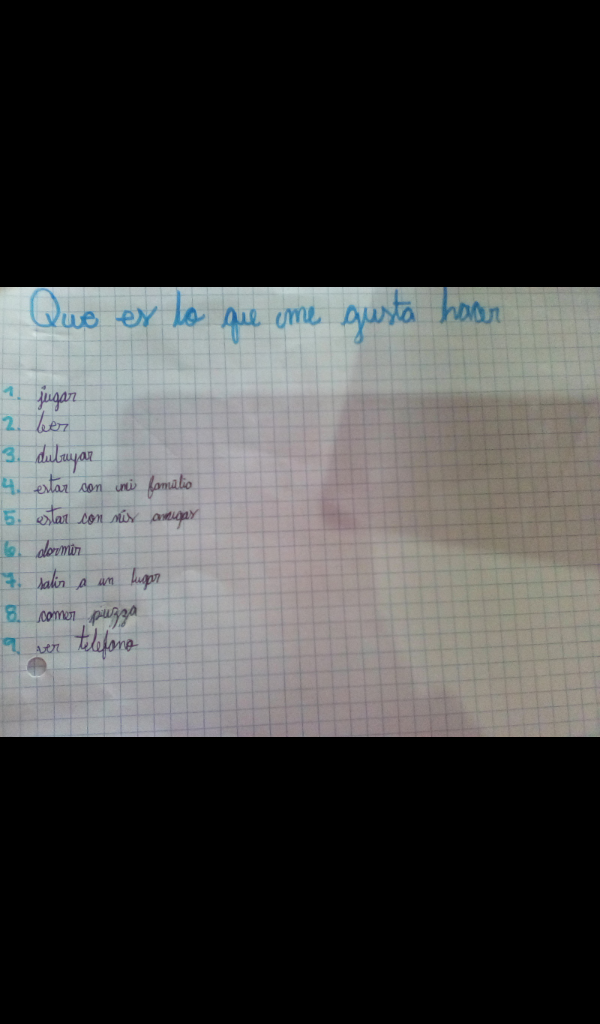 Que es lo que me gusta hacer
1. jugar
2. leer
3. dibujar
4. estar con mi familia
5. estar con mis amigas
6. dormir
7. salir a un lugar
8. comer pizza
9. ver telefono